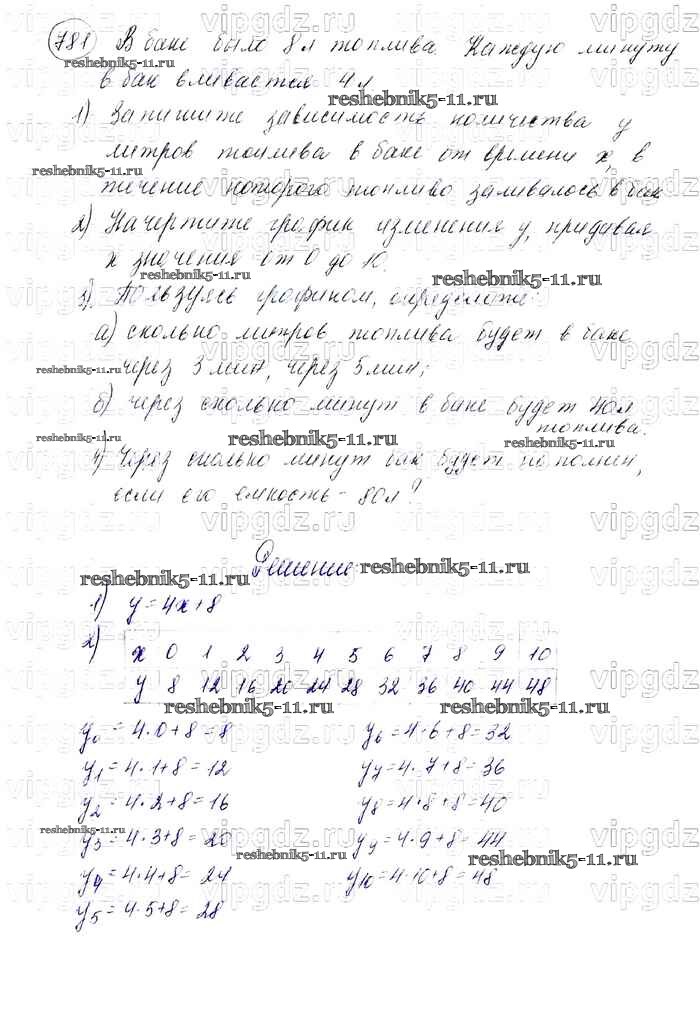 781 В баке было 8 л топлива. Каждую минуту
в бак вливается 4 л.
1) Запишите зависимость количества y
литров топлива в баке от времени x, в
течение которого топливо заливалось в бак
2) Начертите график изменения y, придавая
x значения от 0 до 10.
3) Пользуясь графиком, определите:
а) сколько литров топлива будет в баке
через 3 мин, через 5 мин;
б) через сколько минут в баке будет 40 л
топлива.
4) Через сколько минут бак будет наполнен,
если его емкость - 80 л?
Решение
1) y = 4x + 8
2)
x 0 1 2 3 4 5 6 7 8 9 10
y 8 12 16 20 24 28 32 36 40 44 48
y₀ = 4·0+8 = 8 y₆ = 4·6+8 = 32
y₁ = 4·1+8 = 12 y₇ = 4·7+8 = 36
y₂ = 4·2+8 = 16 y₈ = 4·8+8 = 40
y₃ = 4·3+8 = 20 y₉ = 4·9+8 = 44
y₄ = 4·4+8 = 24 y₁₀ = 4·10+8 = 48
y₅ = 4·5+8 = 28
vipgdz.ru
reshebnik5-11.ru